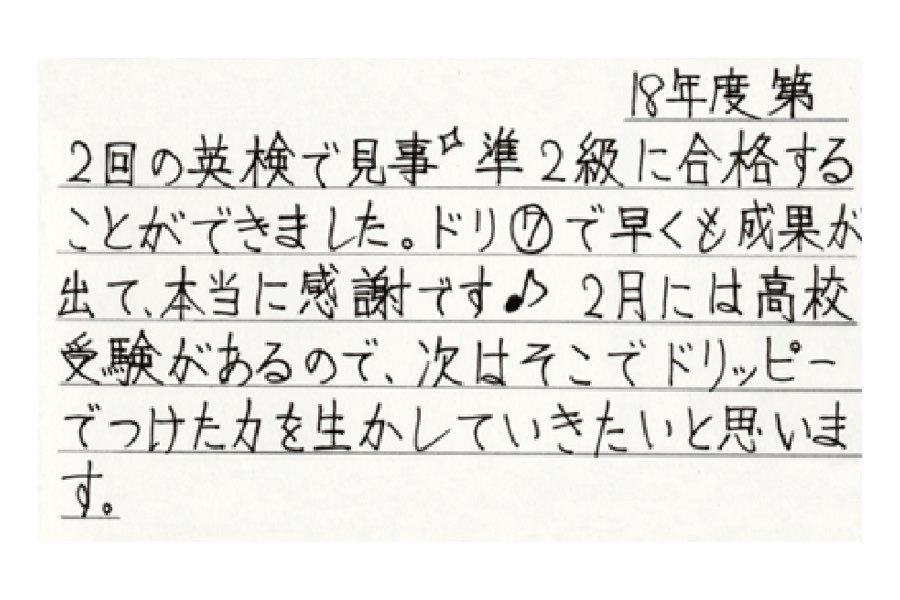 18年度 第
2回の英検で見事✧準2級に合格する
ことができました。ドリ⑦で早くも成果が
出て、本当に感謝です♪ 2月には高校
受験があるので、次はそこでドリッピー
でつけた力を生かしていきたいと思いま
す。